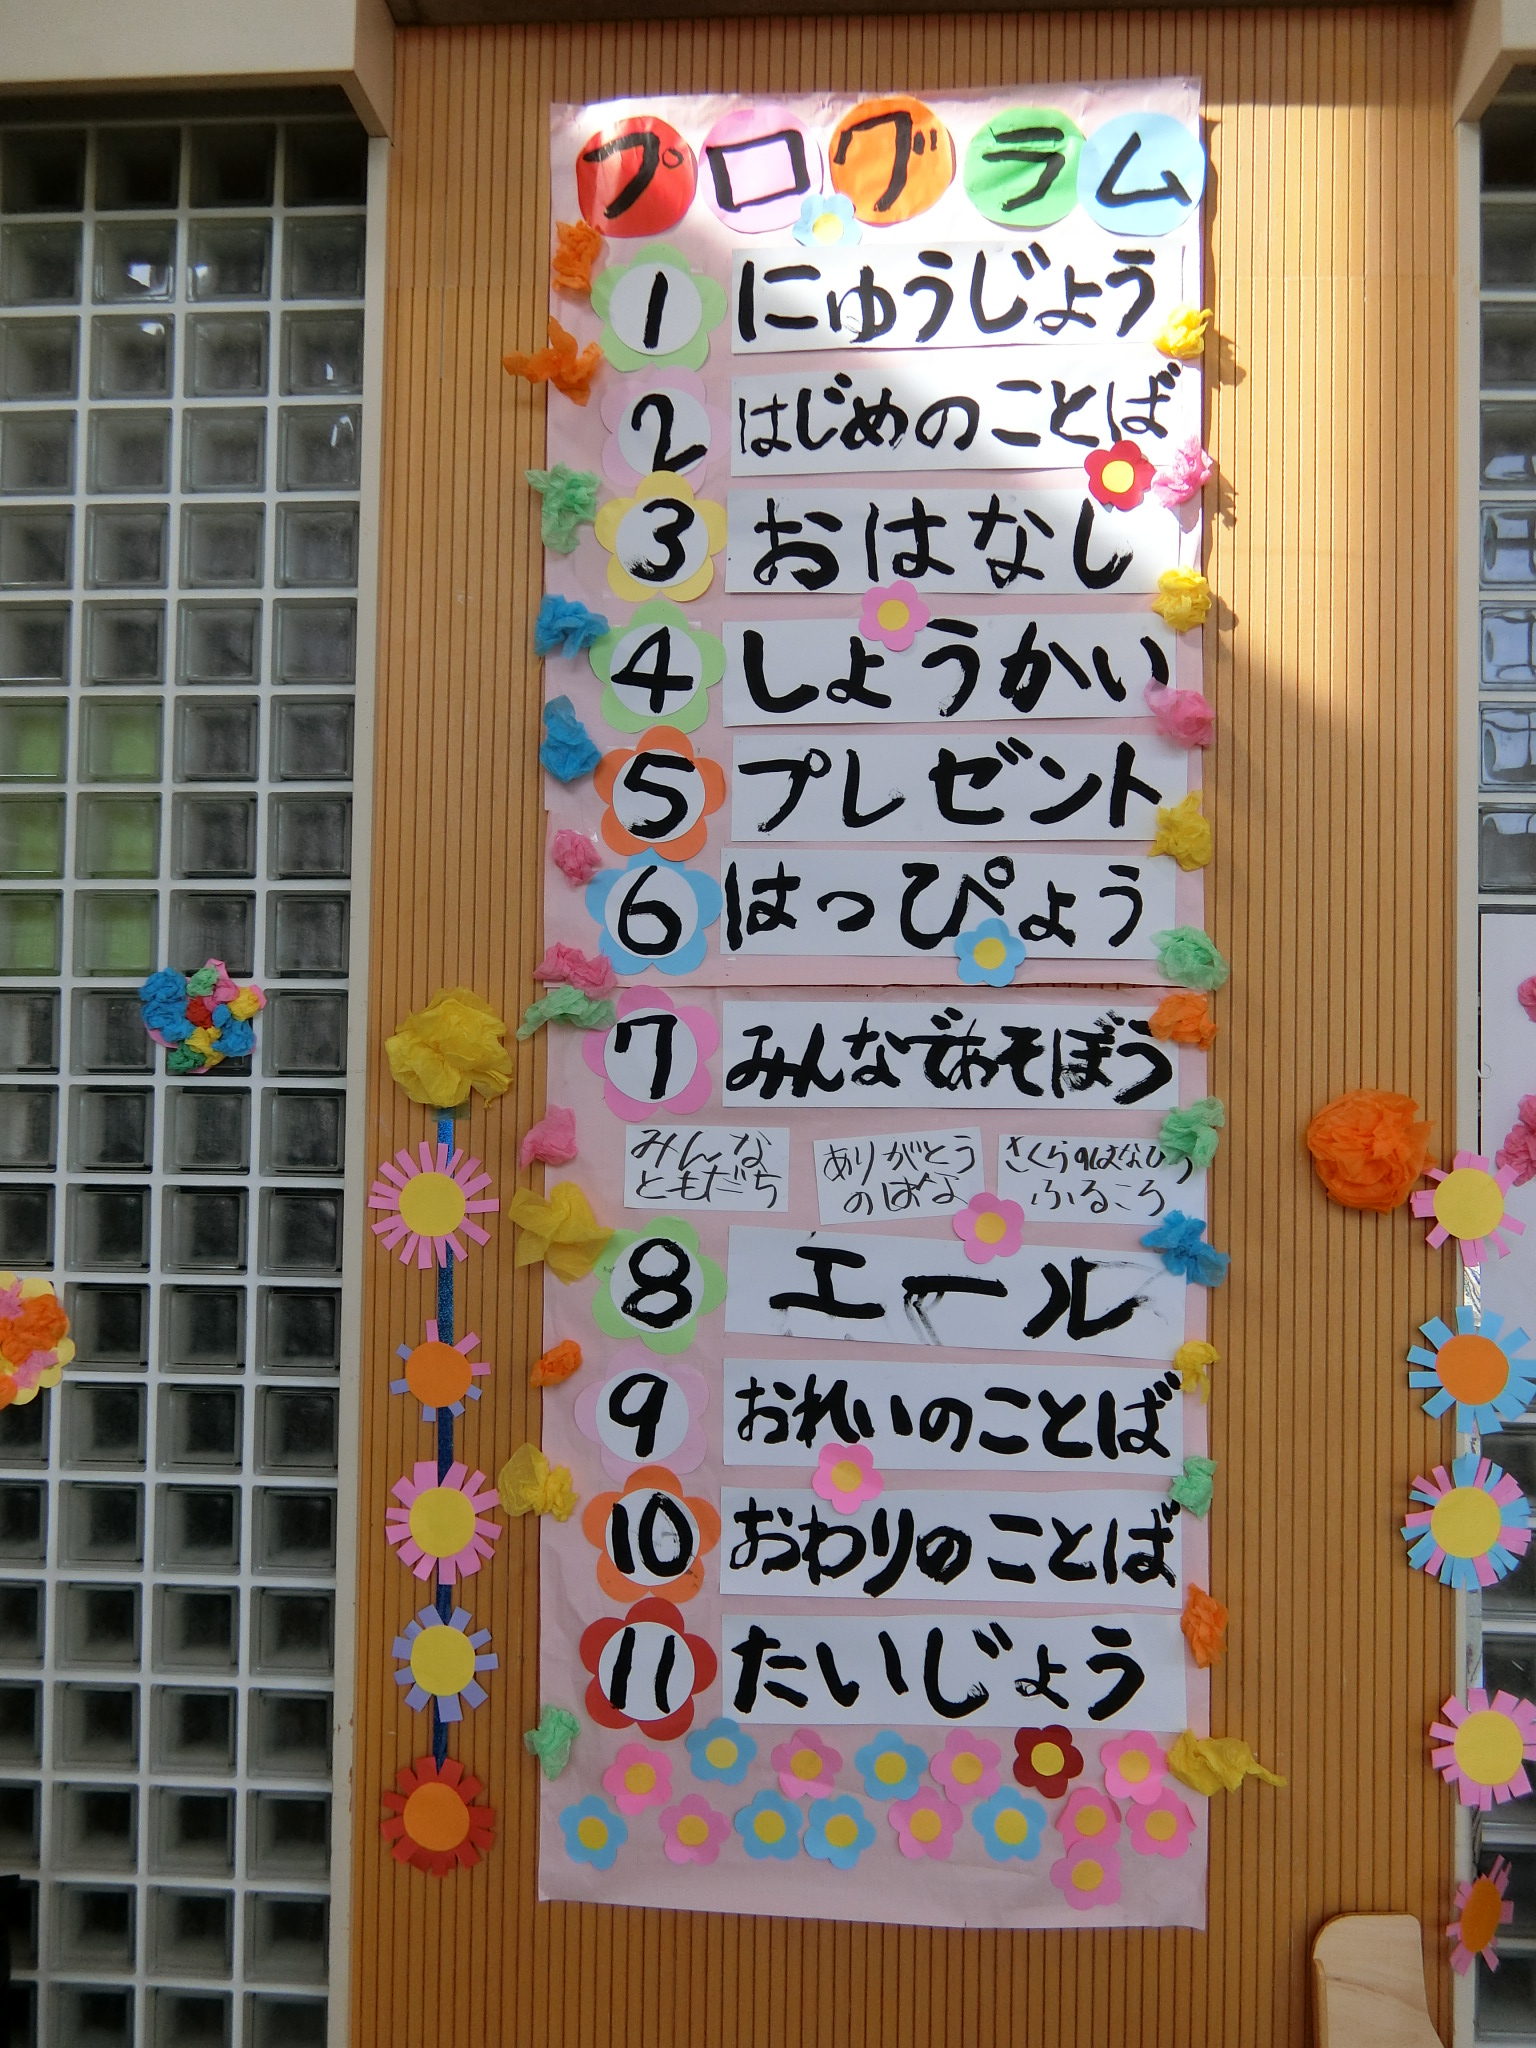 プログラム
1 にゅうじょう
2 はじめのことば
3 おはなし
4 しょうかい
5 プレゼント
6 はっぴょう
7 みんなであそぼう
みんな
ともだち
ありがとう
のはな
さくらのはなびら
ふるころ
8 エール
9 おれいのことば
10 おわりのことば
11 たいじょう